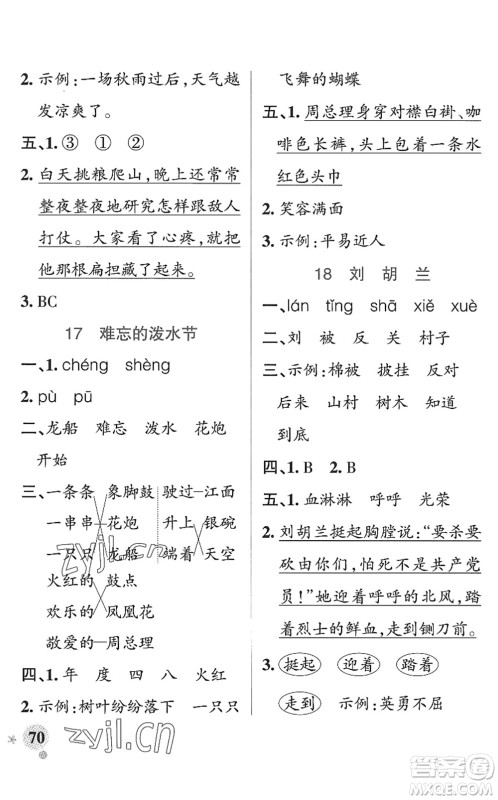 2. 示例：一场秋雨过后，天气越
发凉爽了。
五、1. ③ ① ②
2. 白天挑粮爬山，晚上还常常
整夜整夜地研究怎样跟敌人
打仗。大家看了心疼，就把
他那根扁担藏了起来。
3. BC
17 难忘的泼水节
一、1. chéng shèng
2. pù pū
二、龙船 难忘 泼水 花炮
开始
三、一条条 象脚鼓 驶过 江面
一串串 花炮 升上 银碗
一只只 龙船 端着 天空
火红的 鼓点
欢乐的 凤凰花
敬爱的 周总理
四、1. 年 度 四 八 火红
2. 示例：树叶纷纷落下 一只只
70
飞舞的蝴蝶
五、1. 周总理身穿对襟白褂、咖
啡色长裤，头上包着一条水
红色头巾
2. 笑容满面
3. 示例：平易近人
18 刘胡兰
一、lán tǐng shā xiě xuè
二、刘 被 反 关 村子
三、示例：棉被 披挂 反对
后来 山村 树木 知道
到底
四、1. B 2. B
五、1. 血淋淋 呼呼 光荣
2. 刘胡兰挺起胸膛说：“要杀要
砍由你们，怕死不是共产党
员！”她迎着呼呼的北风，踏
着烈士的鲜血，走到铡刀前。
3. 挺起 迎着 踏着
走到 示例：英勇不屈
zyjl.cn
zyjl.cn
答案圈
MXQE.COM